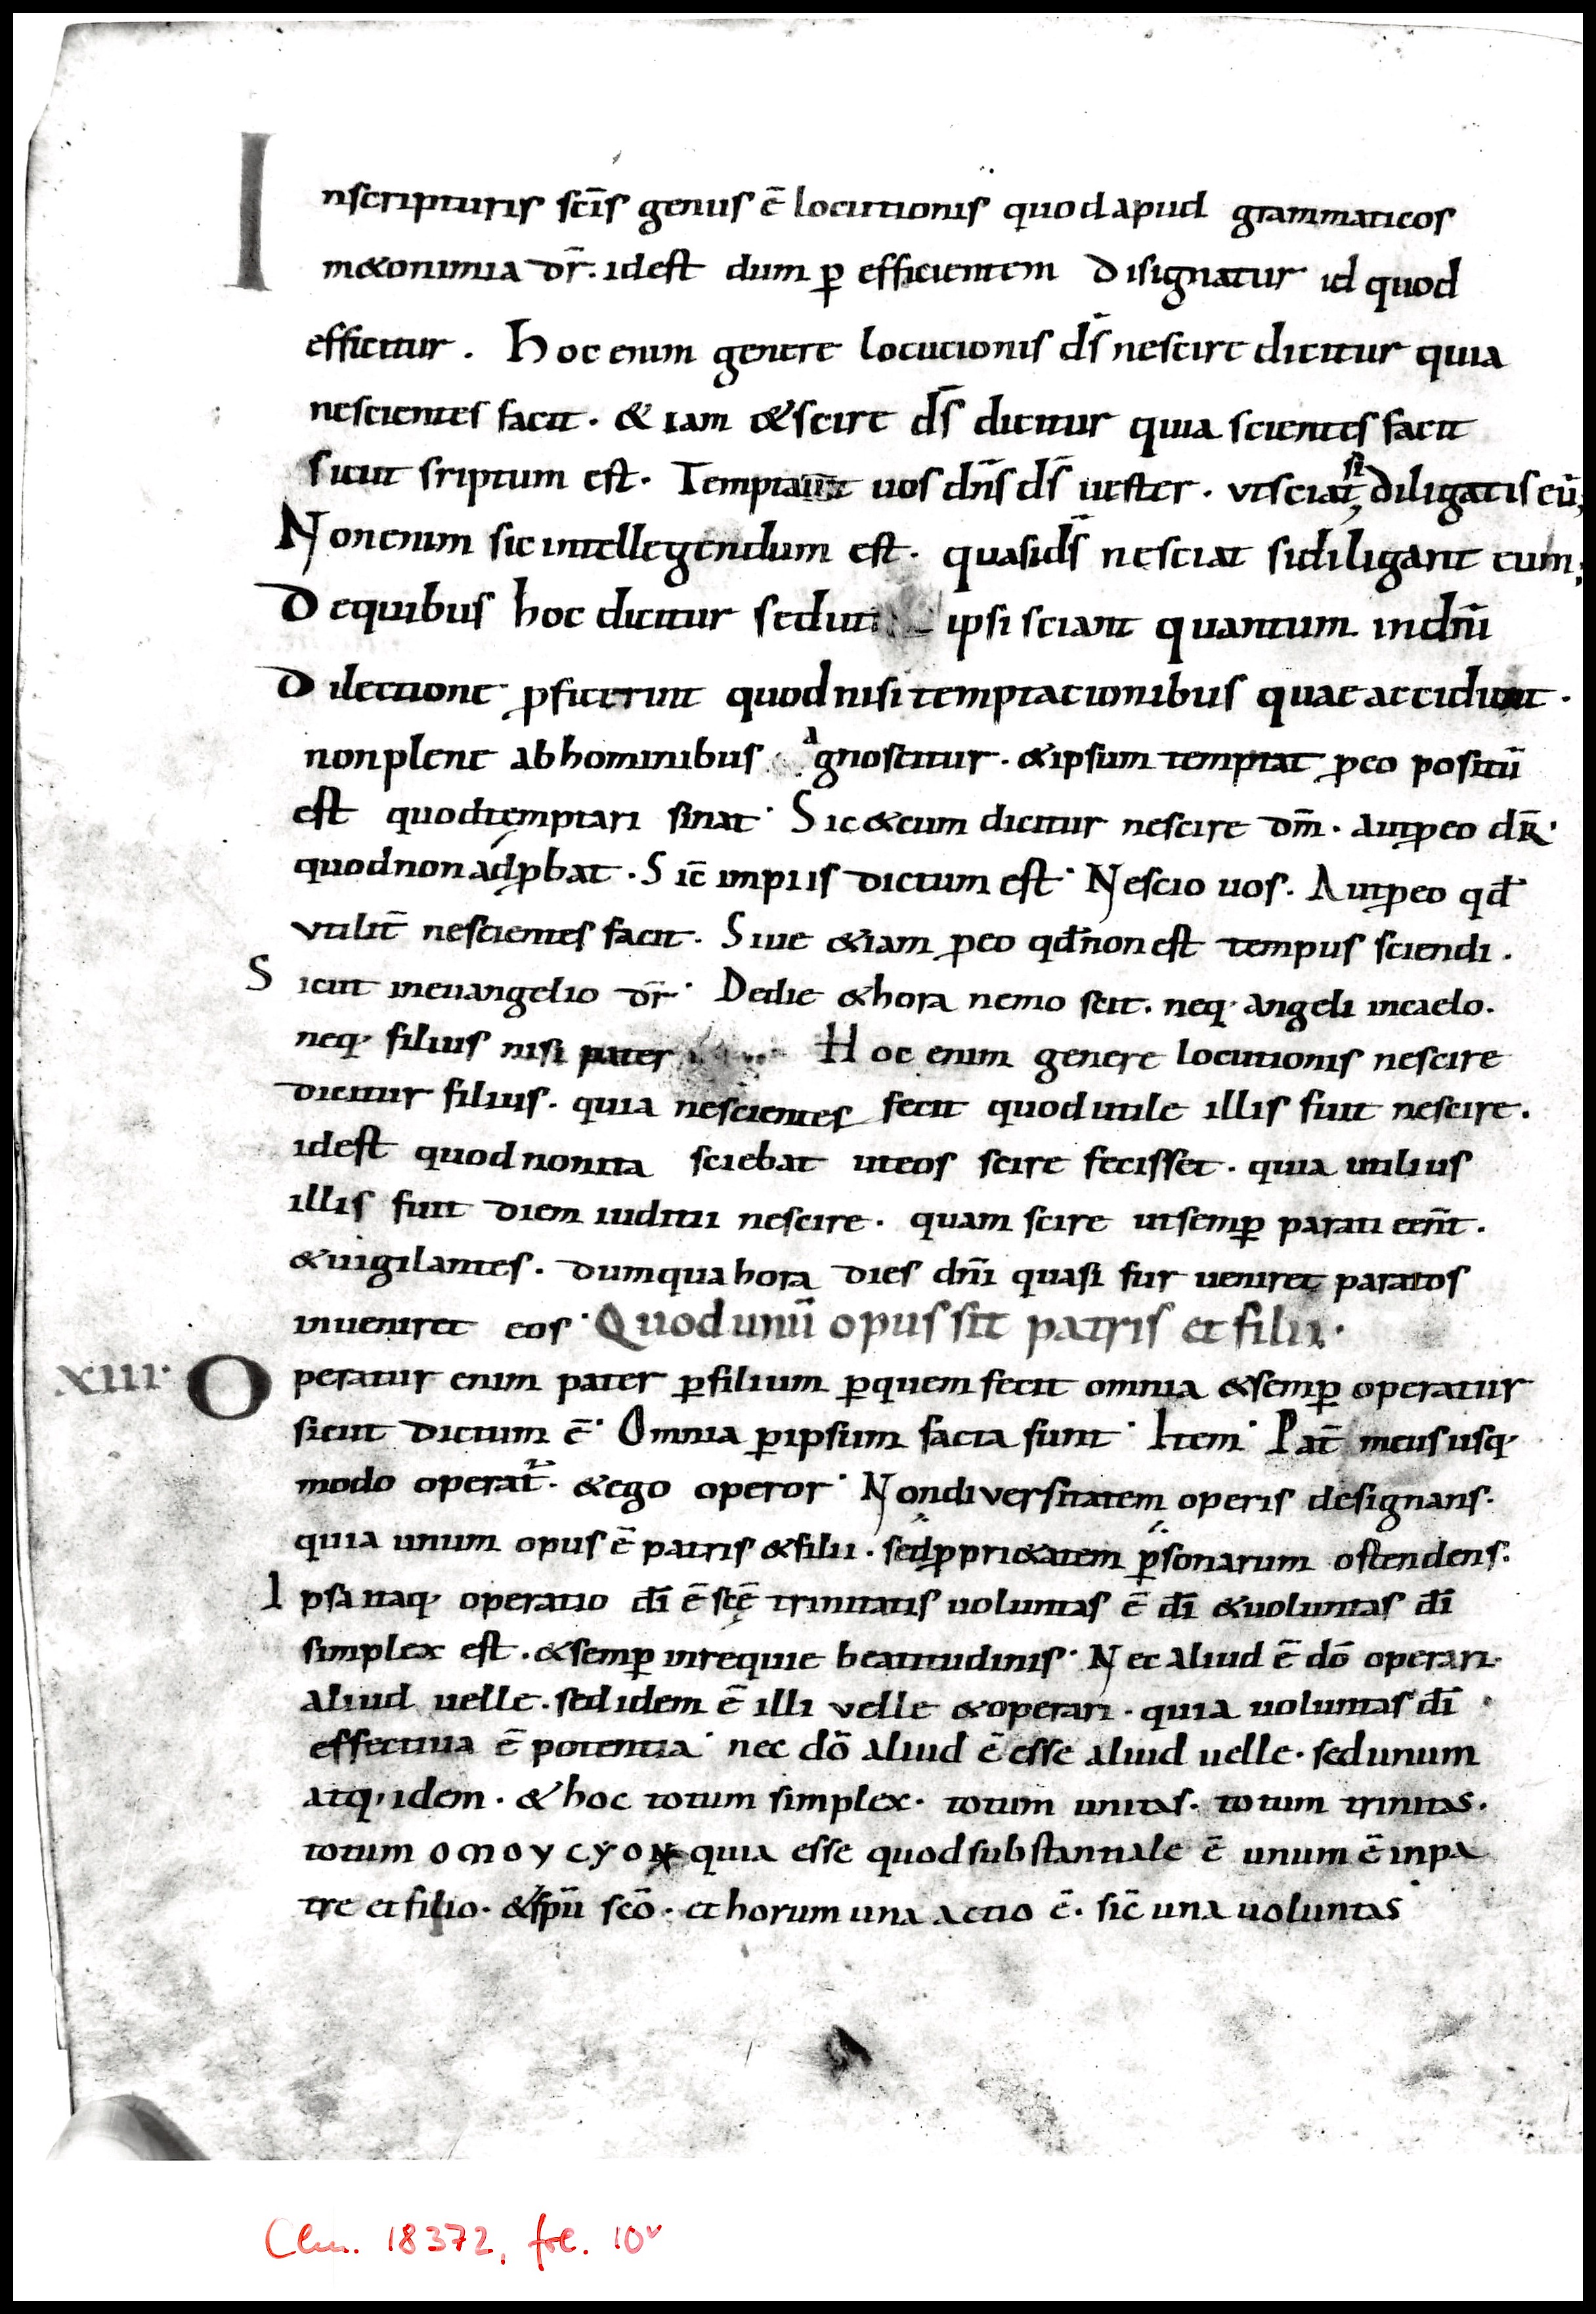 Inscripturis sc̄is genus ē locutionis quod apud grammaticos
m&onimia dr̄. id est dum ꝑ efficientem disignatur id quod
efficitur. Hoc enim genere locucionis d̄s nescire dicitur quia
nescientes facit. & iam & scire d̄s dicitur quia scientes facit
sicut sriptum est. Temptauit uos dn̄s d̄s uester. ut sciat si diligatis eū;
Non enim sic intellegendum est. quasi d̄s nesciat si diligant eum;
De quibus hoc dicitur sed ut ipsi sciant quantum in dn̄i
dilectione ꝓficerint quod nisi temptacionibus quae accidunt.
non plene ab hominibus agnoscitur. & ipsum temptat ꝓ eo positū
est quod temptari sinat. Sic & cum dicitur nescire dm̄. aut ꝓ eo dr̄.
quod non adꝓbat. Sic̄ impiis dictum est. Nescio uos. Aut ꝓ eo qđ
utilit̄ nescientes facit. Siue & iam ꝓ eo qđ non est tempus sciendi.
Sicut in euangelio dr̄. De die & hora nemo scit. neq· angeli in caelo.
neq· filius nisi pater Hoc enim genere locutionis nescire
dicitur filius. quia nescientes fecit quod utile illis fuit nescire.
id est quod non ita sciebat ut eos scire fecisset. quia utilius
illis fuit diem iuditii nescire. quam scire ut semꝑ parati er̄nt.
& uigilantes. dum qua hora dies dn̄i quasi fur ueniret paratos
inueniret eos. Quod unū opus sit patris et filii.
XIII. Operatur enim pater ꝑ filium ꝑ quem fecit omnia & semꝑ operatur
sicut dictum ē. Omnia ꝑ ipsum facta sunt. Item. Pat̄ meus usq·
modo operat̄. & ego operor. Non diversitatem operis designans.
quia unum opus ē patris & filii. sed ꝓpri&atem ꝑsonarum ostendens.
Ipsa itaq· operatio dī ē sc̄ę trinitatis uoluntas ē dī & uoluntas dī
simplex est. & semꝑ in requie beatitudinis. Nec aliud ē dō operari
aliud uelle. sed idem ē illi velle & operari. quia uoluntas dī
effectiua ē potentia. nec dō aliud ē esse aliud uelle. sed unum
atq· idem. & hoc totum simplex. totum unitas. totum trinitas.
totum omoycyon quia esse quod substantiale ē unum ē in pa
tre et filio. & sp̄u sc̄o. et horum una actio ē. sic̄ una uoluntas
Clm. 18372, fol. 10v